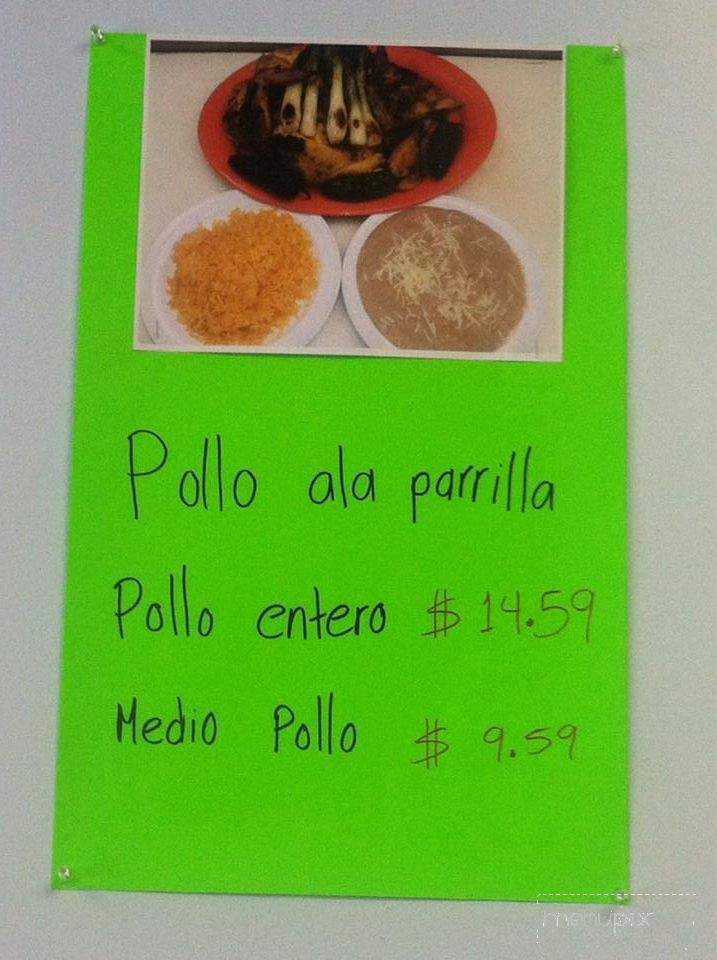 Pollo ala parrilla
Pollo entero $ 14.59
Medio Pollo $ 9.59
menupix